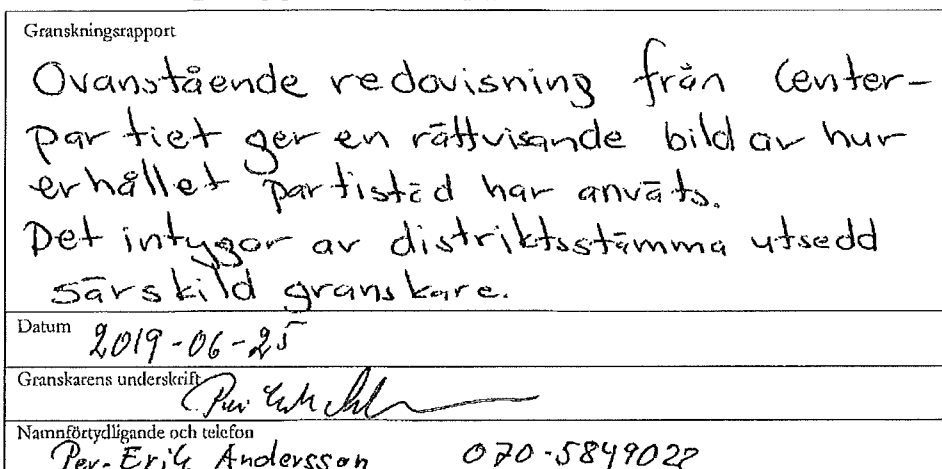 Granskningsrapport
Ovanstående redovisning från Center-
partiet ger en rättvisande bild av hur
erhållet partistöd har anväts.
Det intygar av distriktsstämma utsedd
särskild granskare.
Datum 2019-06-25
Granskarens underskrift
Namnförtydligande och telefon
Per-Erik Andersson 070-5849028